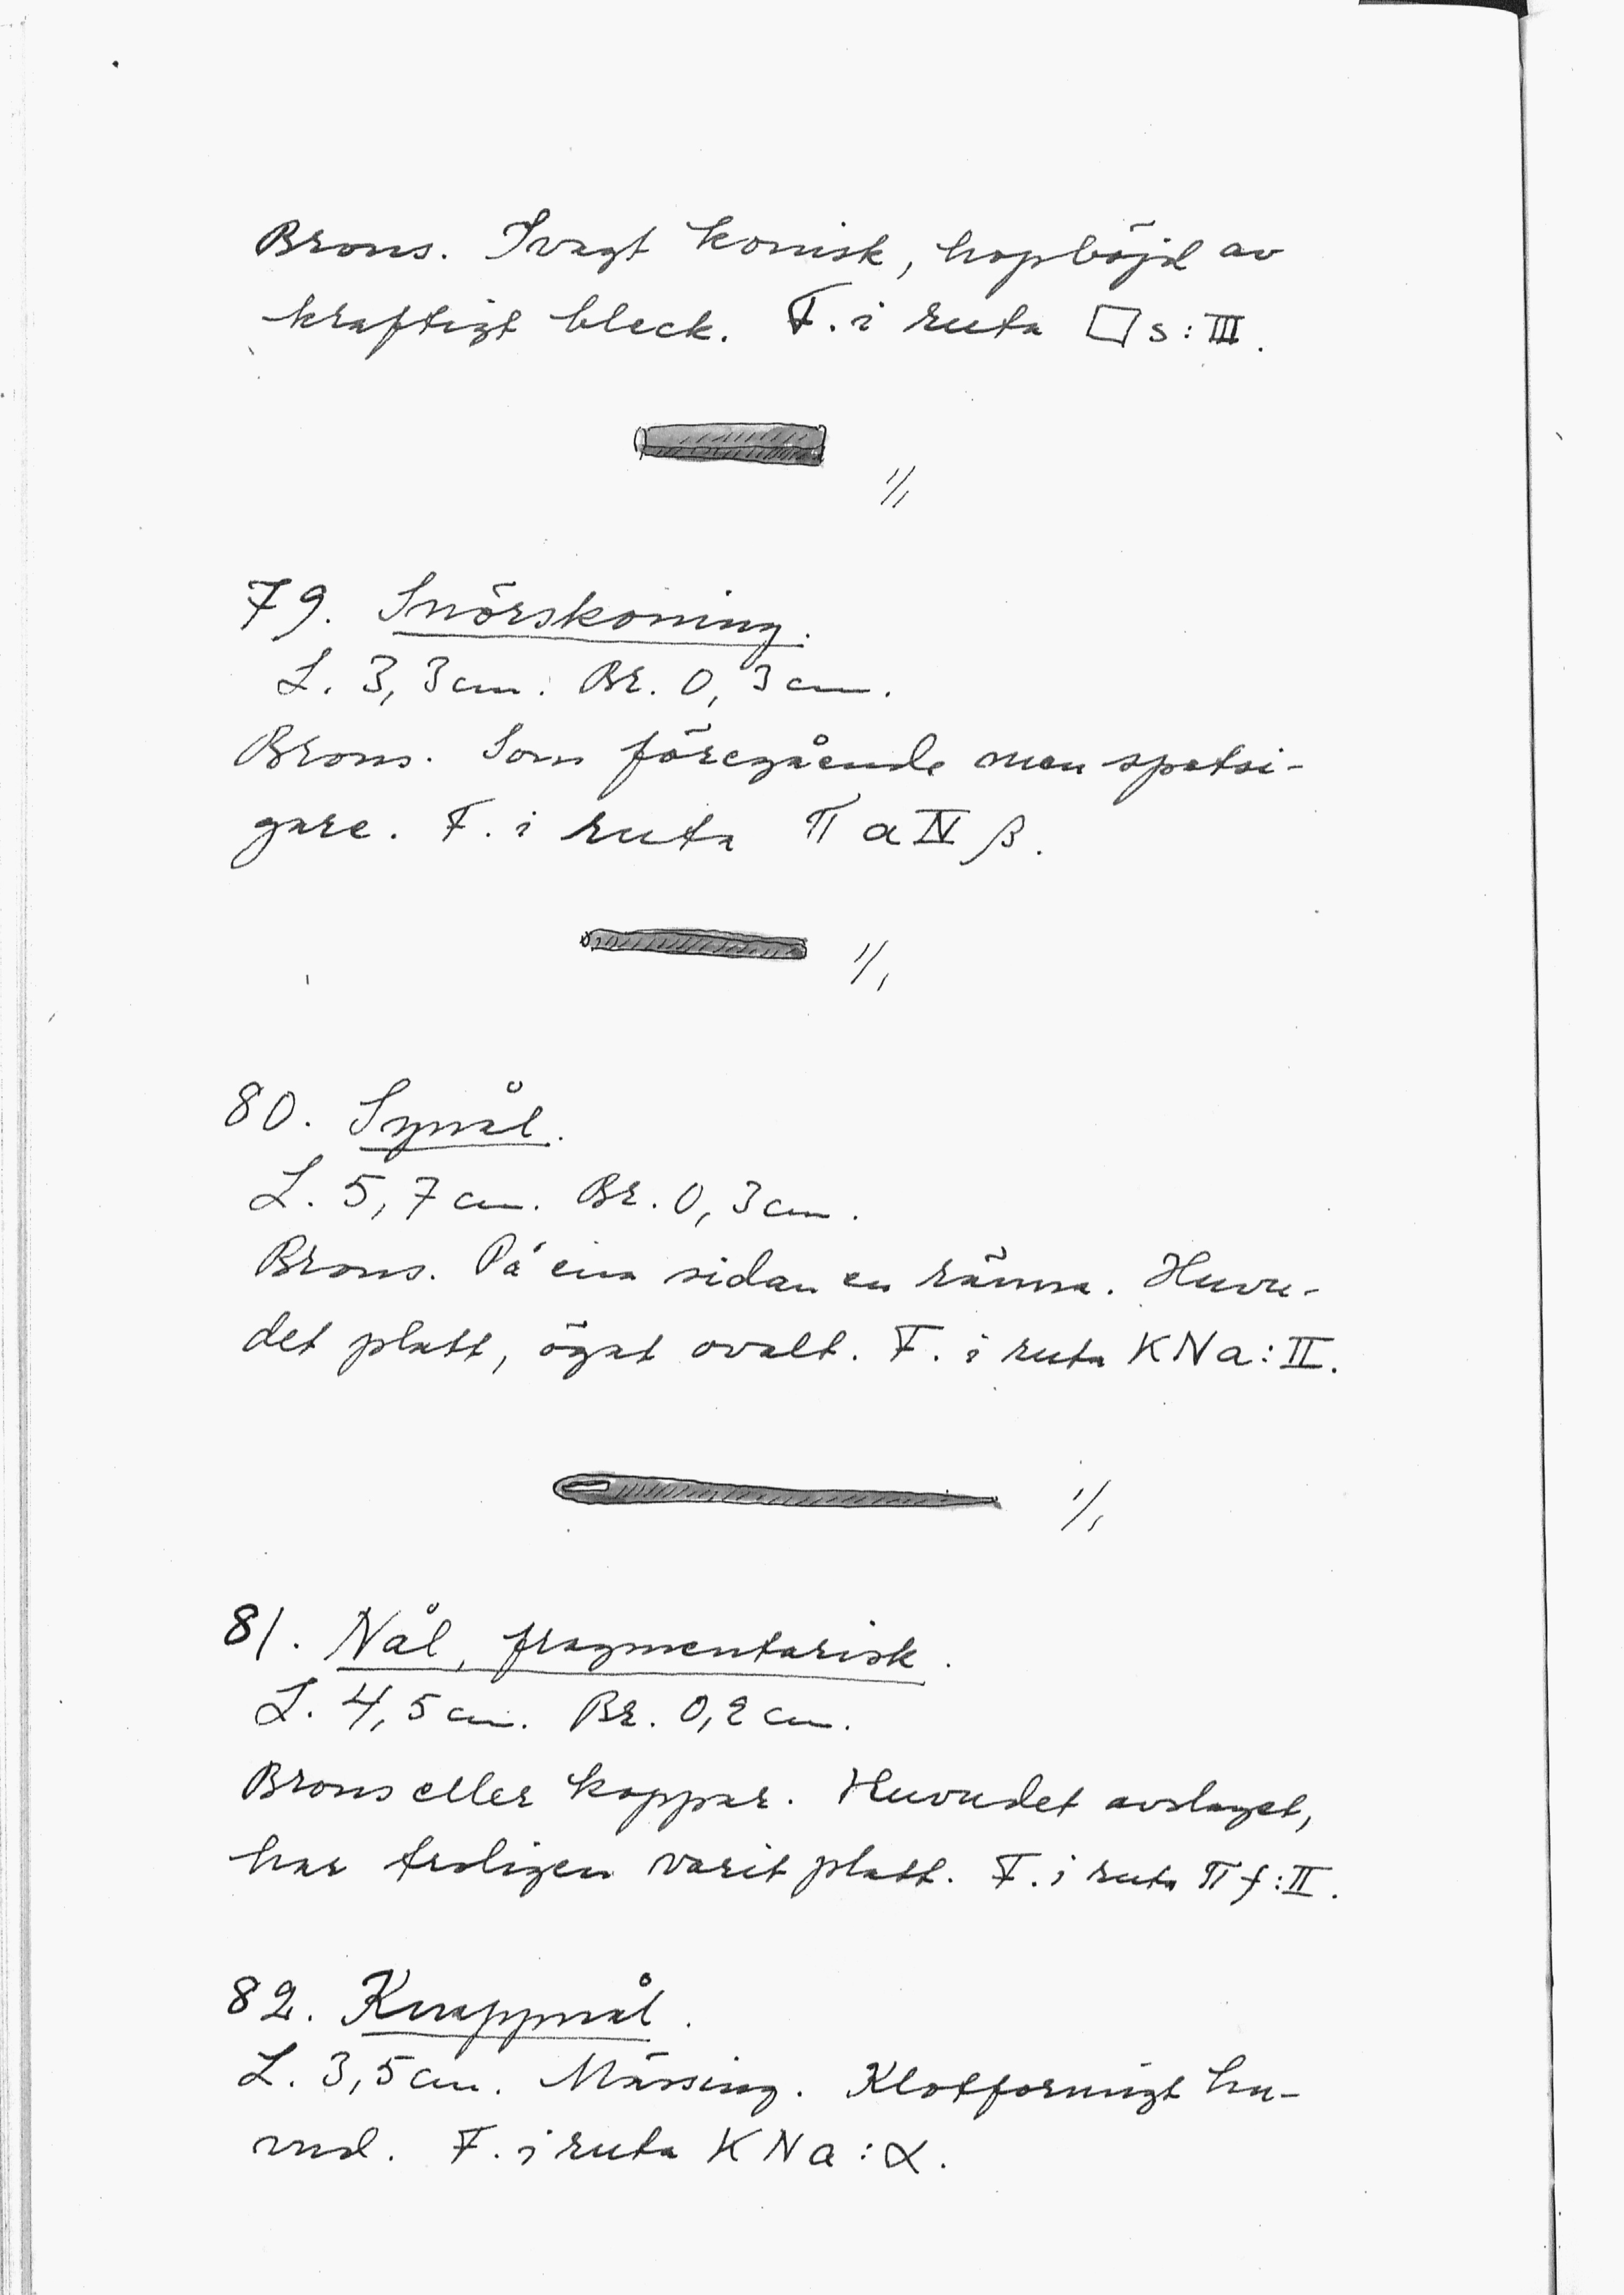 Brons. Svagt konisk, hopböjd av
kraftigt bleck. F. i ruta □ s: III.
1/1
79. Snörskoning.
L. 3,3 cm. Br. 0,3 cm.
Brons. Som föregående men spetsi-
gare. F. i ruta π a IV β.
1/1
80. Synål.
L. 5,7 cm. Br. 0,3 cm.
Brons. På ena sidan en ränna. Huvu-
det platt, ögat ovalt. F. i ruta KNa: II.
1/1
81. Nål, fragmentarisk.
L. 4,5 cm. Br. 0,2 cm.
Brons eller koppar. Huvudet avslaget,
har troligen varit platt. F. i ruta π f: II.
82. Knappnål.
L. 3,5 cm. Mässing. Klotformigt hu-
vud. F. i ruta KNa: α.